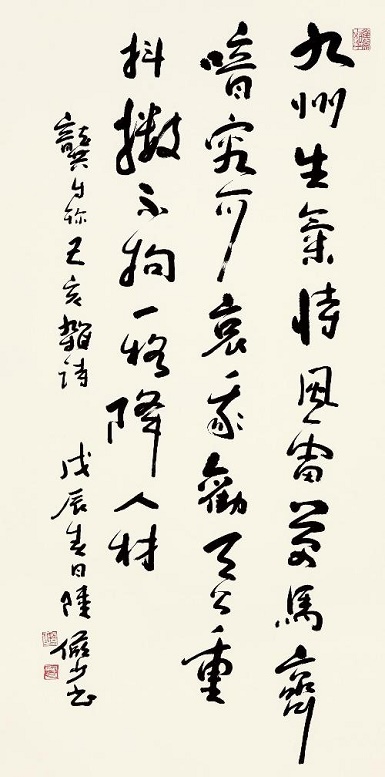 九州生氣恃風雷萬馬齊
喑究可哀我勸天公重
抖擻不拘一格降人材
龔自珍己亥雜詩 戊辰春日陸儼少書